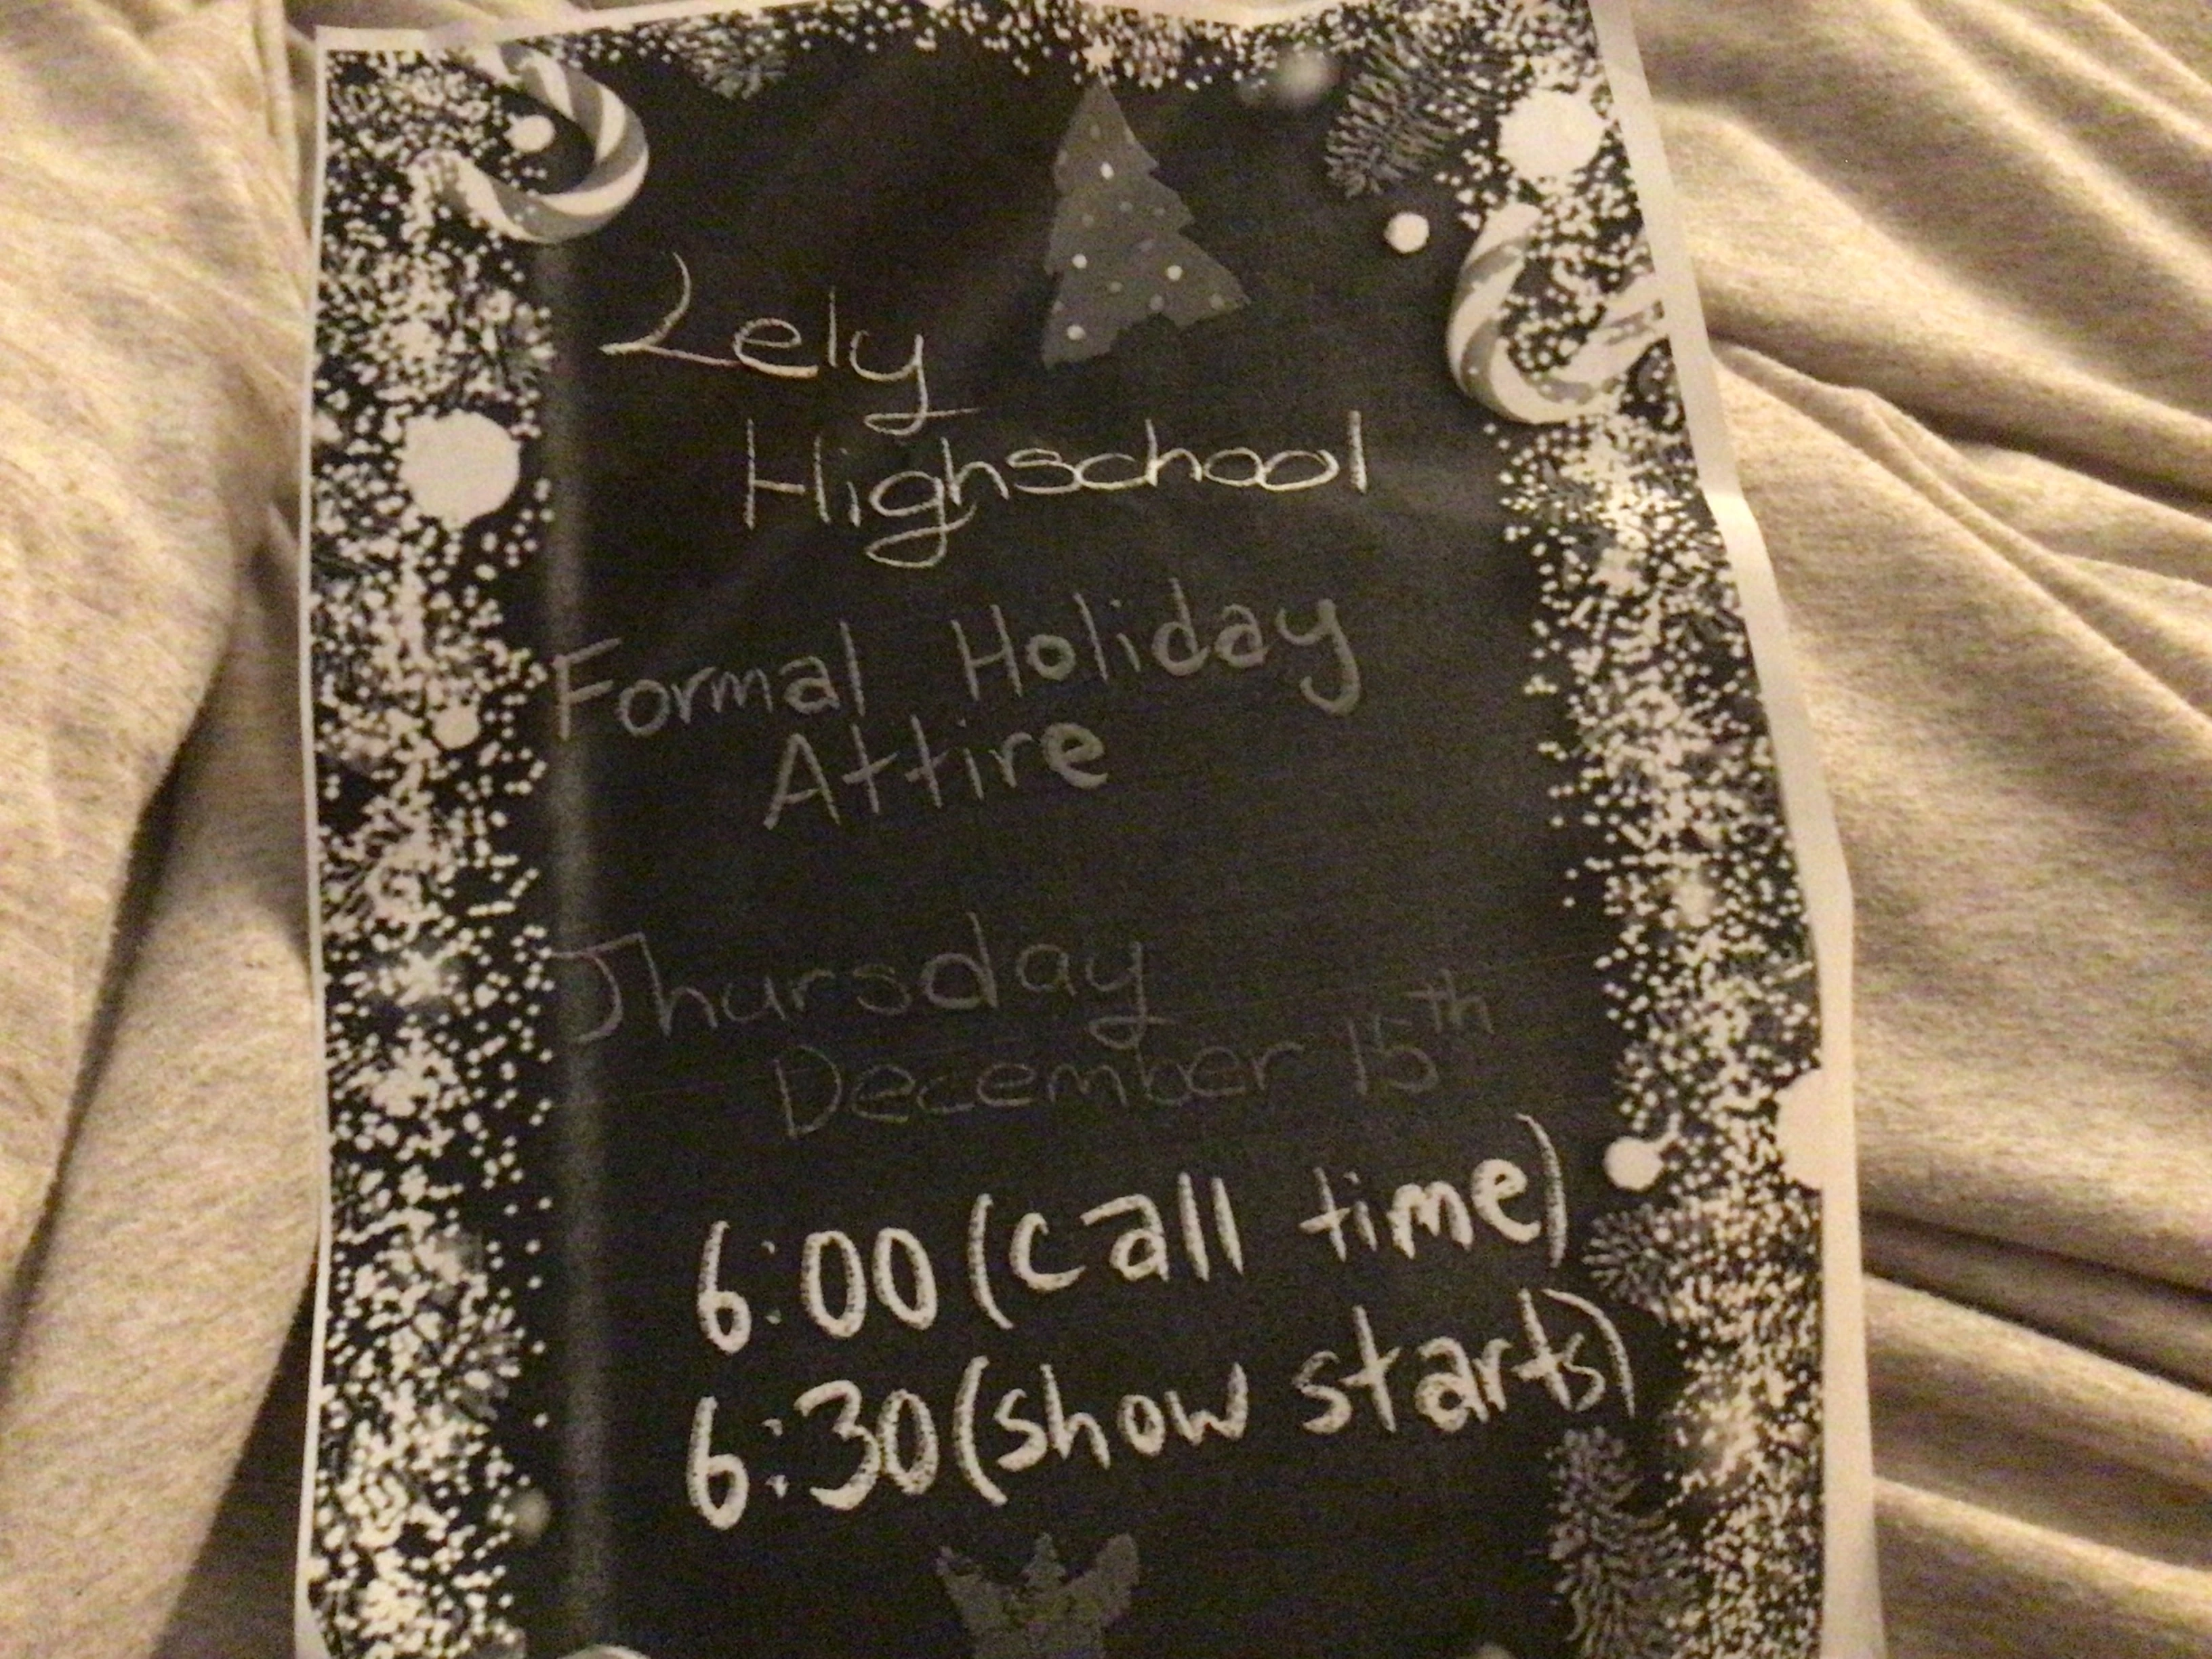 Lely
Highschool
Formal Holiday
Attire
Thursday
December 15th
6:00 (call time)
6:30 (show starts)